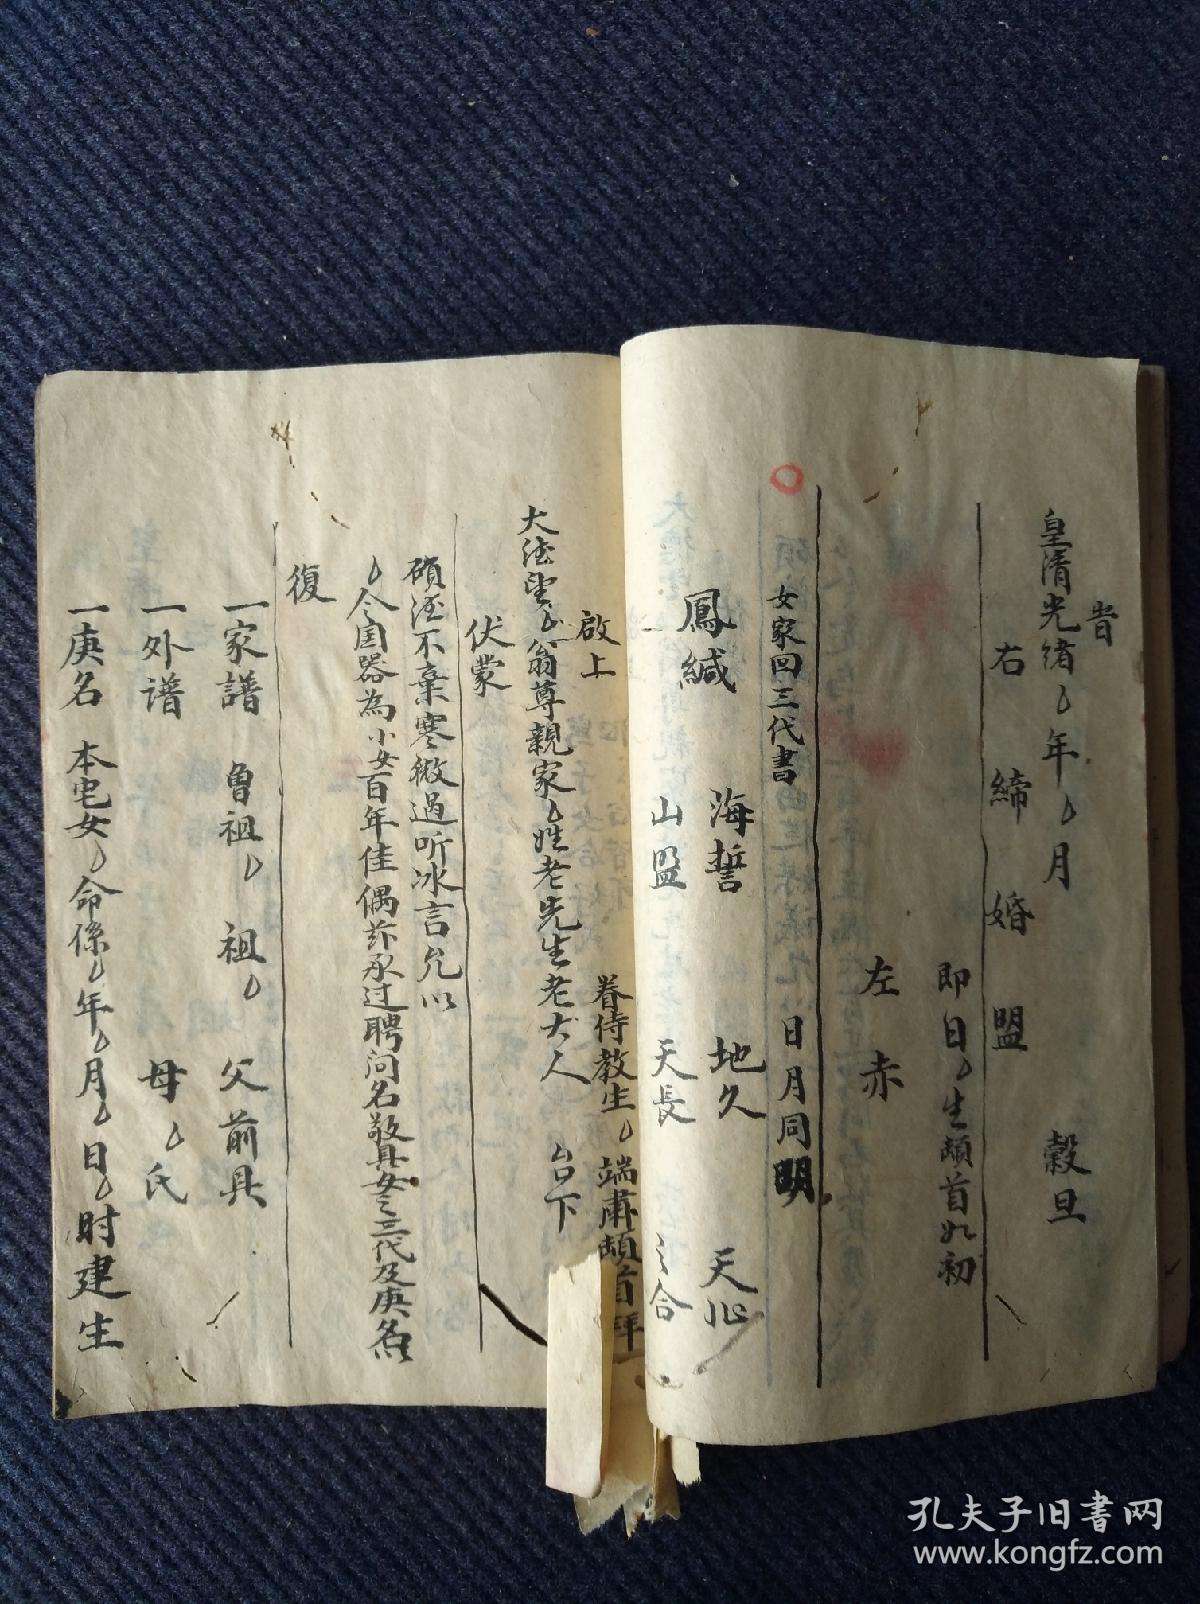 旹
皇清光绪ㄣ年ㄣ月 穀旦
右 締 婚 盟
即日ㄣ生頓首如初
左 赤
女家回三代書 日月同明
鳳緘 海誓 地久 天心
山盟 天長 之合
眷侍教生ㄣ端肅頓首拜
啟上
大德望ㄣ翁尊親家ㄣ姓老先生老大人 台下
伏蒙
碩德不棄寒微過听冰言允以
ㄣ令国器為小女百年佳偶兹承过聘问名敬具女之三代及庚名
復
一家譜 曾祖ㄣ 祖ㄣ 父前具
一外谱 母ㄣ氏
一庚名 本宅女ㄣ命係ㄣ年ㄣ月ㄣ日ㄣ时建生
孔夫子旧书网
www.kongfz.com